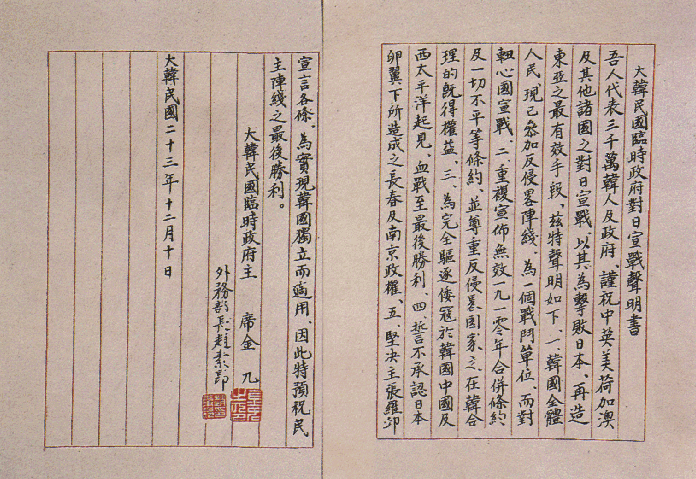 大韓民國臨時政府對日宣戰聲明書
吾人代表三千萬韓人及政府、謹祝中英美荷加澳
及其他諸國之對日宣戰、以其為擊敗日本、再造
東亞之最有效手段、玆特聲明如下、一、韓國全體
人民現已參加反侵畧陣綫、為一個戰鬥單位、而對
軸心國宣戰、二、重複宣佈無效一九一零年合併條約
及一切不平等條約、並尊重反侵畧國家之、在韓合
理的既得權益、三、為完全驅逐倭寇於韓國中國及
西太平洋起見、血戰至最後勝利 四、誓不承認日本
卵翼下所造成之長春及南京政權、五、堅決主張羅邱
宣言各條、為實現韓國獨立而適用、因此特預祝民
主陣綫之最後勝利。
大韓民國臨時政府主 席金 九
外務部長趙素昂
大韓民國二十三年十二月十日